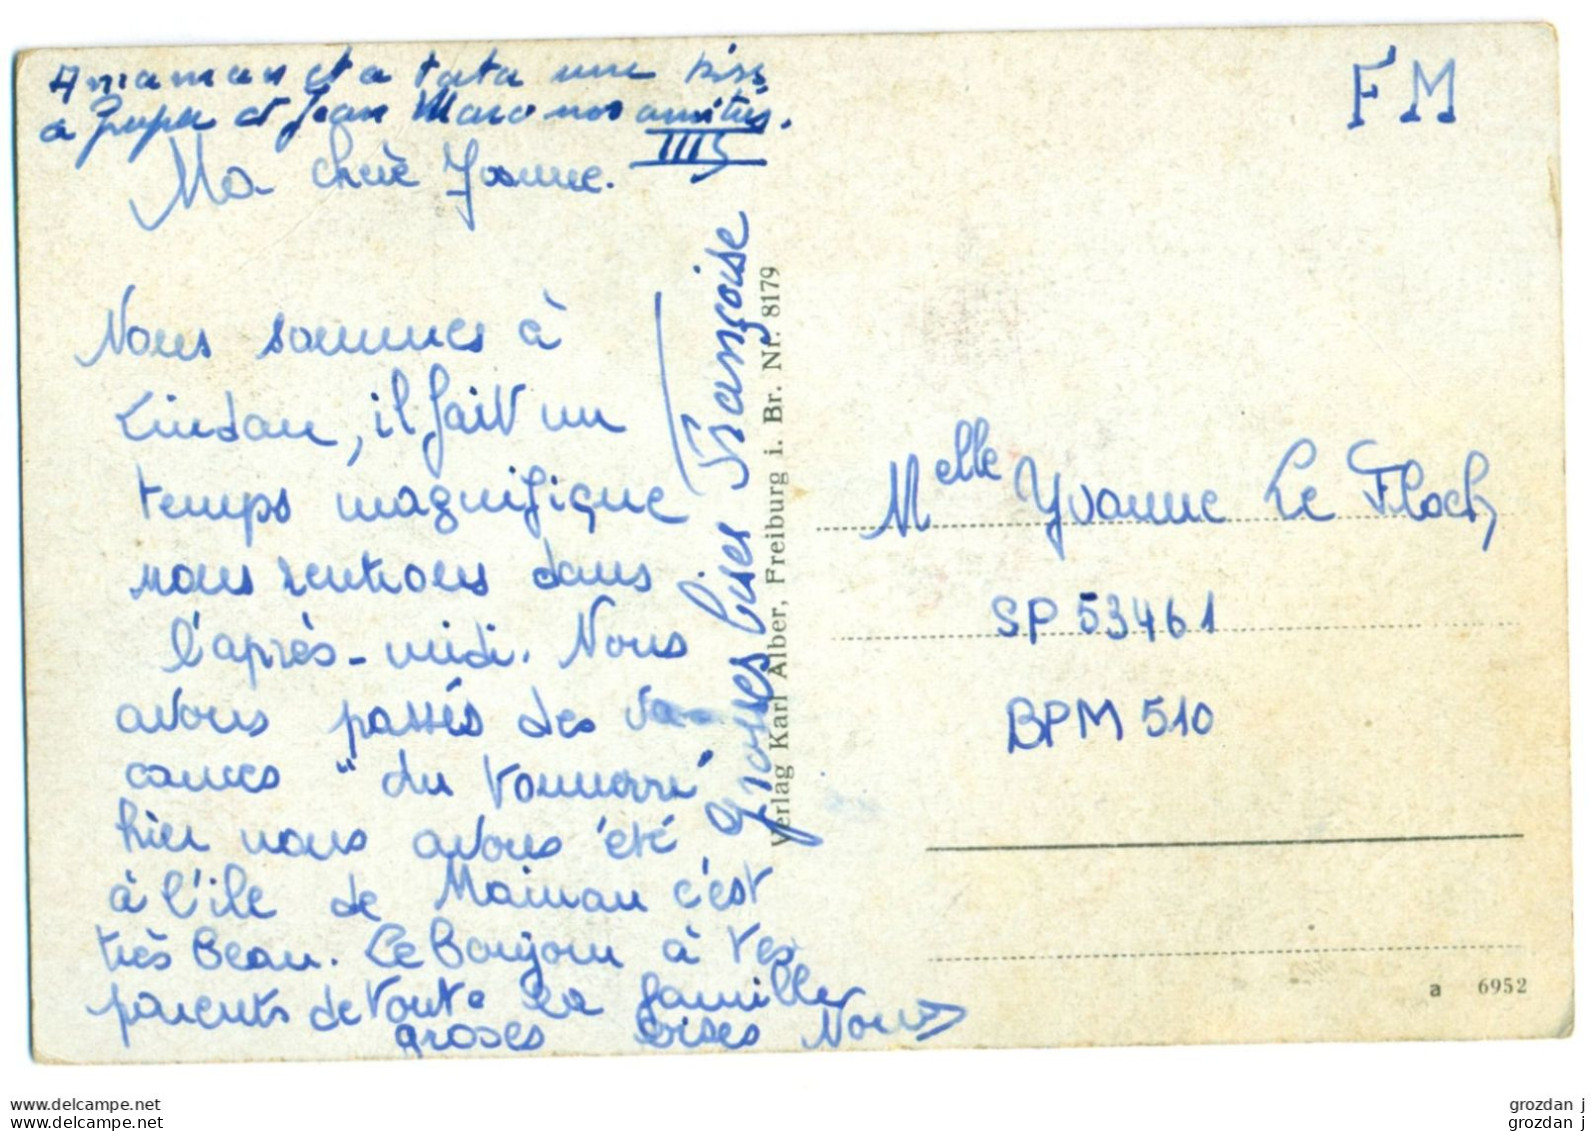 A maman et a tata une bise
a papa et Jean Marc nos amitiés.
Ma chère Yvonne.
Nous sommes à
Lindau, il fait un
temps magnifique
nous rentrons dans
l'après-midi. Nous
avons passés des va
cances "du tonnerre"
hier nous avons été
à l'ile de Mainau c'est
très beau. Le Bonjour à tes
parents de toute la famille
groses bises Nous
groses bises Françoise
Verlag Karl Alber, Freiburg i. Br. Nr. 8179
FM
Melle Yvonne Le Floch
SP 53461
BPM 510
a 6952
www.delcampe.net
www.delcampe.net
grozdan j
grozdan j